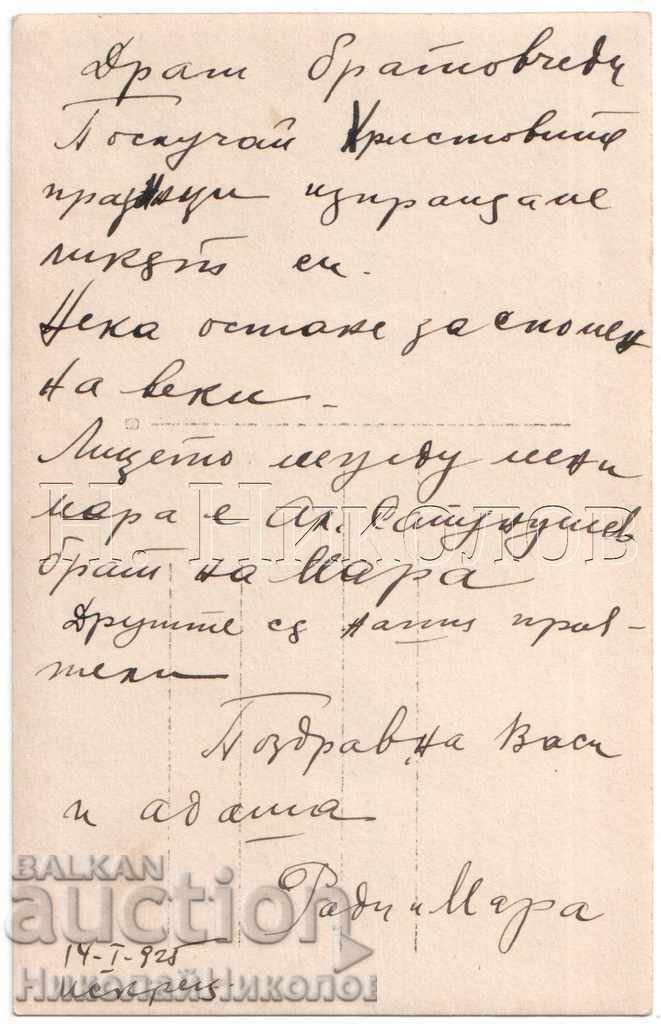 Драги братовчеди
По случай Христовите
празници изпращаме
ликът си.
Нека остане за спомен
на веки.
Лицето между мен и
мара е Ал.
брат на Мара
Другите са наши прия-
тели
Поздрав на Васи
и адаша
Ради и Мара
14-I-925
Искрец.
Н. НИКОЛОВ
BALKAN
auction
НиколайНиколов